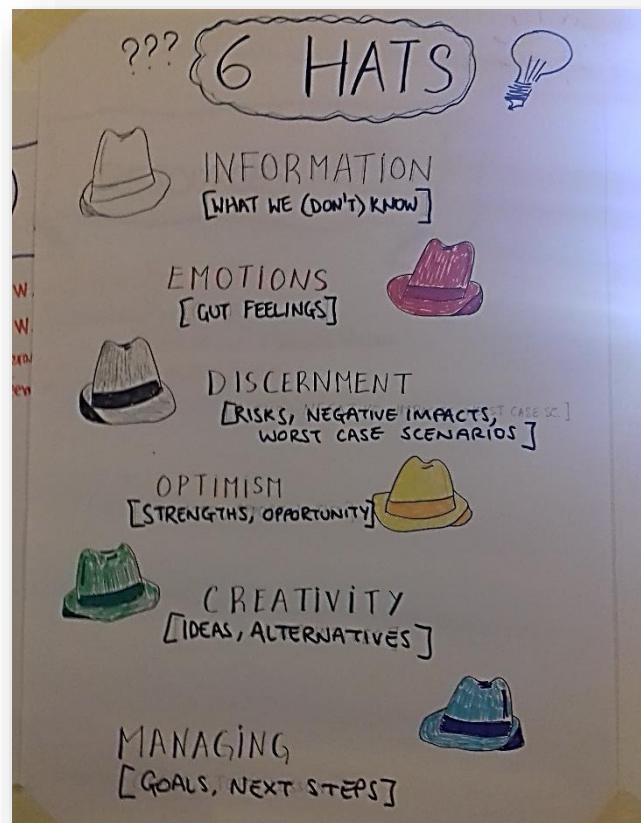 ??? 6 HATS
INFORMATION
[WHAT WE (DON'T) KNOW]
EMOTIONS
[GUT FEELINGS]
DISCERNMENT
[RISKS, NEGATIVE IMPACTS,
WORST CASE SCENARIOS]
OPTIMISM
[STRENGTHS, OPPORTUNITY]
CREATIVITY
[IDEAS, ALTERNATIVES]
MANAGING
[GOALS, NEXT STEPS]